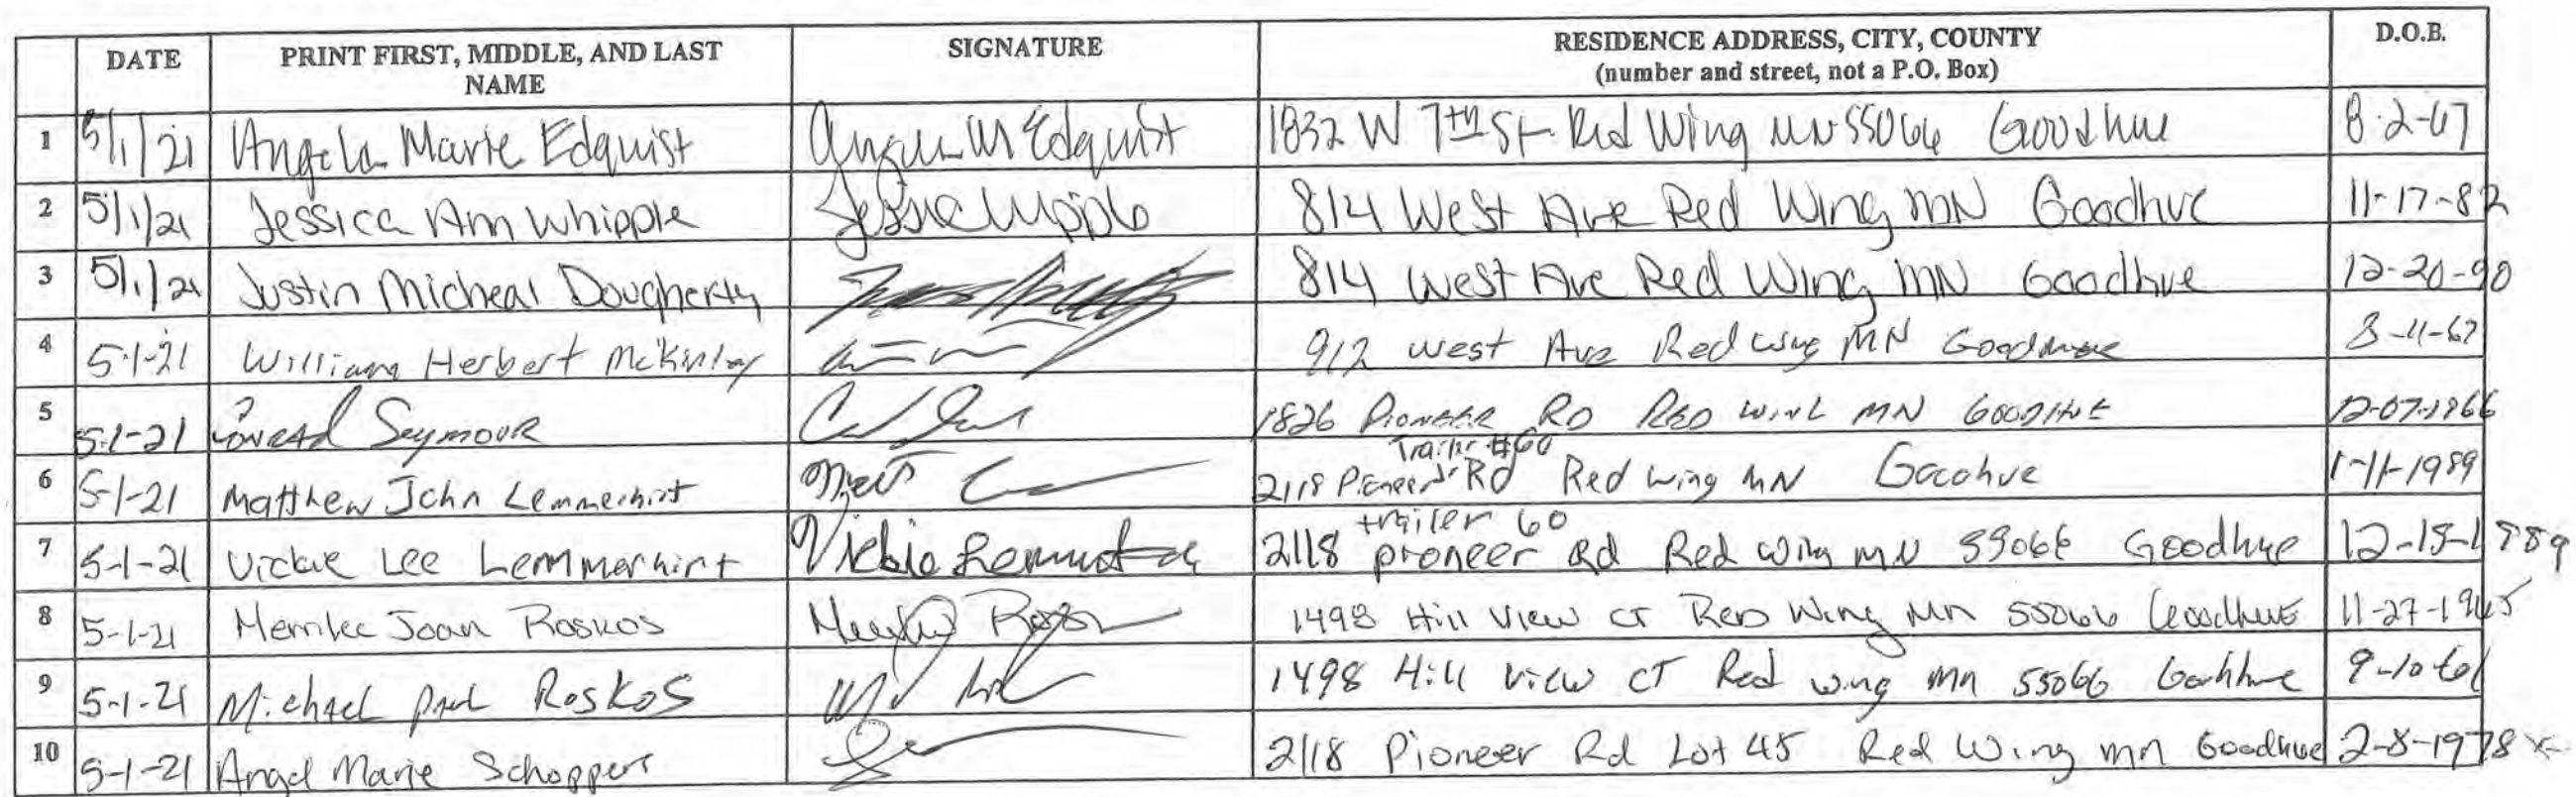 DATE PRINT FIRST, MIDDLE, AND LAST NAME SIGNATURE RESIDENCE ADDRESS, CITY, COUNTY (number and street, not a P.O. Box) D.O.B.
1 5/1/21 Angela Marie Edquist Edquist 1832 W 7th St Red Wing MN 55066 Goodhue 8-2-67
2 5/1/21 Jessica Ann Whipple 814 West Ave Red Wing MN Goodhue 11-17-82
3 5/1/21 Justin Micheal Dougherty 814 West Ave Red Wing MN Goodhue 12-20-90
4 5-1-21 William Herbert McKinley 912 West Ave Red Wing MN Goodhue 3-11-67
5 5-1-21 Conrad Seymour 1826 Pioneer RD RED WING MN GOODHUE 12-07-1966
6 5-1-21 Matthew John Lemmerhirt 2118 Pioneer Rd Trailer #60 Red wing MN Goodhue 1-11-1989
7 5-1-21 Vickie Lee Lemmerhirt Vickie 2118 pioneer Rd trailer 60 Red Wing MN 55066 Goodhue
8 5-1-21 Merrilee Joan Roskos 1498 Hill View CT Red Wing Mn 55066 Goodhue 11-27-1945
9 5-1-21 Michael Paul Roskos 1498 Hill View CT Red wing mn 55066 Goodhue
10 5-1-21 Angel Marie Schoppers 2118 Pioneer Rd Lot 45 Red Wing mn Goodhue 2-8-1978